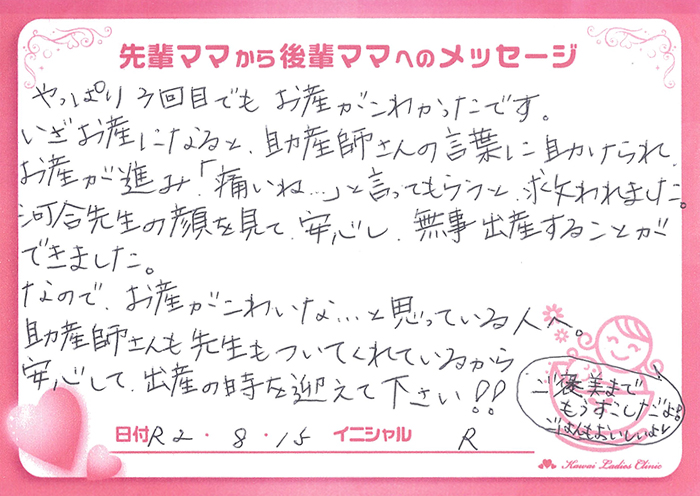 先輩ママから後輩ママへのメッセージ
やっぱり3回目でも お産がこわかったです。
いざお産になると、助産師さんの言葉に助けられ、
お産が進み、「痛いね…」と言ってもらうと、救われました。
河合先生の顔を見て、安心し、無事出産することが
できました。
なので、お産がこわいな…と思っている人へ。
助産師さんも先生もついてくれているから
安心して、出産の時を迎えて下さい!!
ご褒美まで
もうすこしだよ!
ごはんもおいしいよ!
日付 R2・8・15 イニシャル R
Kawai Ladies Clinic